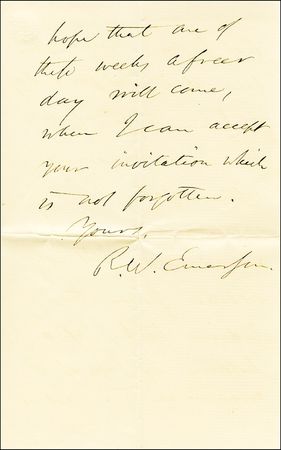 hope that one of
these weeks a freer
day will come,
when I can accept
your invitation which
is not forgotten.
Yours,
R. W. Emerson.